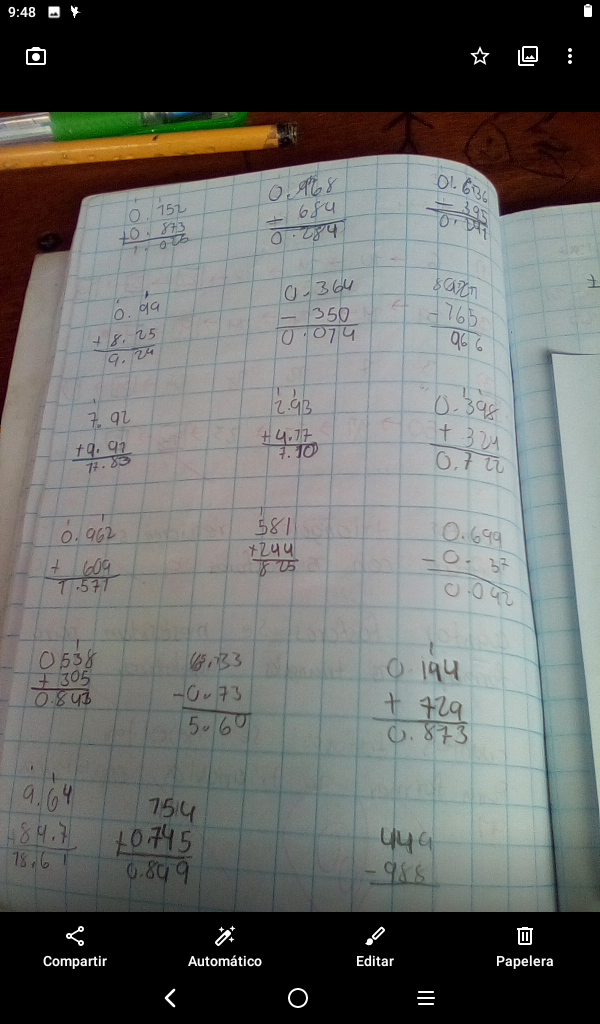 9:48
0.152
+0.873
1.025
0.968
- 684
0.284
01.636
- 395
0.241
0.99
+8.25
9.24
0.364
- 350
0.014
-765
966
7.92
+9.97
17.89
2.93
+4.17
7.10
0.398
+ 324
0.722
0.962
+ 609
1.571
581
+244
825
0.699
-0. 37
0.042
0538
+ 305
0.843
-0.73
5.60
0.194
+ 729
0.873
9.64
+84.7
18.61
754
+0.745
0.849
449
-988
Compartir
Automático
Editar
Papelera